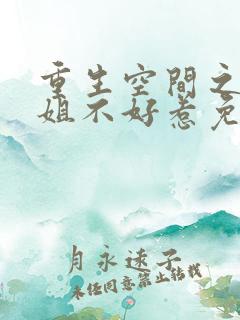 重生空間之
姐不好惹免
月永遠子
未经同意禁止转载